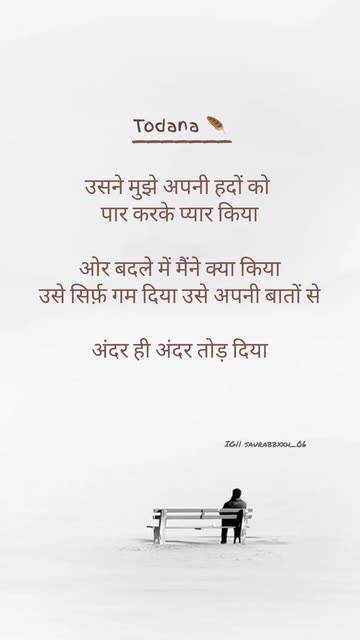 Todana
उसने मुझे अपनी हदों को
पार करके प्यार किया
ओर बदले में मैंने क्या किया
उसे सिर्फ़ गम दिया उसे अपनी बातों से
अंदर ही अंदर तोड़ दिया
IG|| saurabbxxh_06